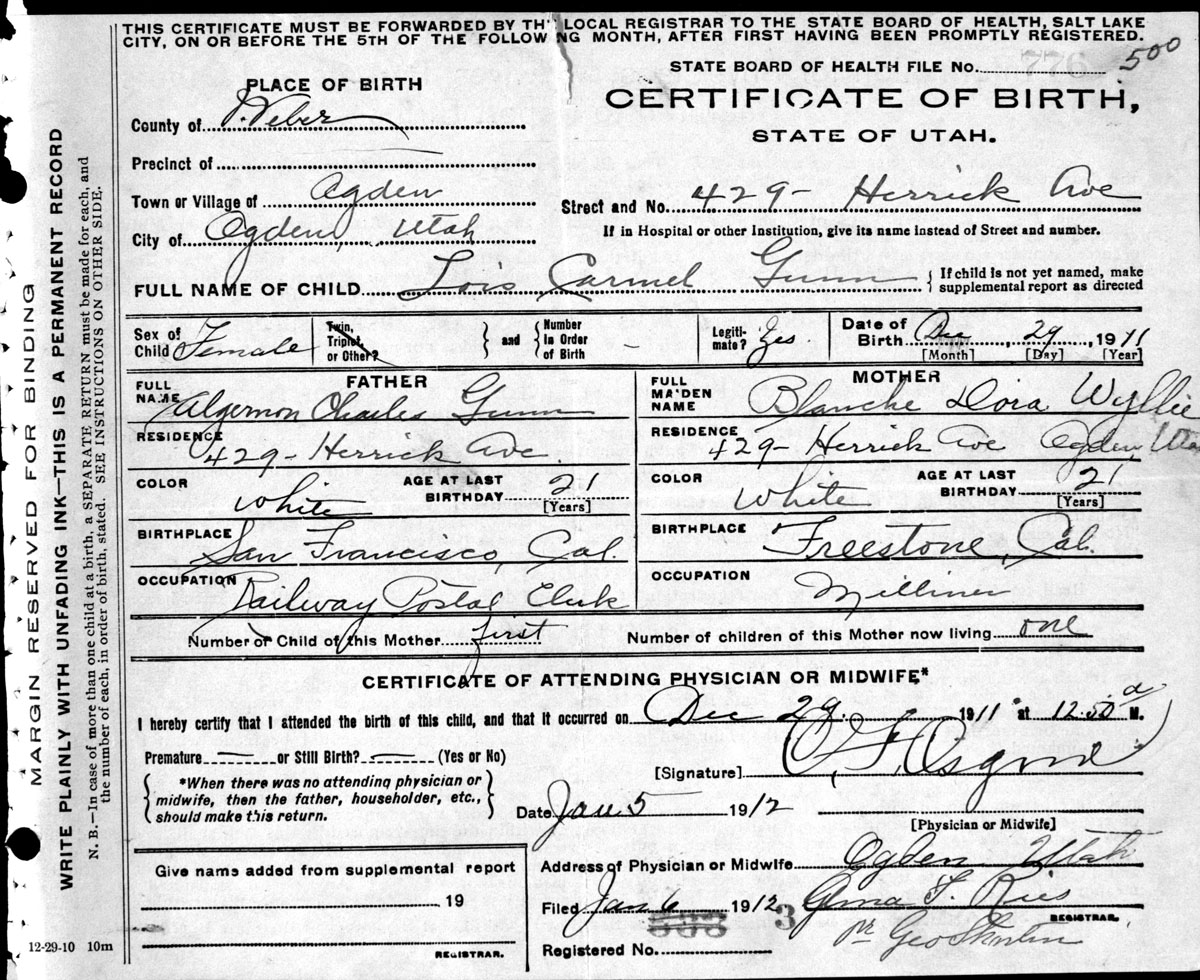 THIS CERTIFICATE MUST BE FORWARDED BY TH LOCAL REGISTRAR TO THE STATE BOARD OF HEALTH, SALT LAKE
CITY, ON OR BEFORE THE 5TH OF THE FOLLOWING MONTH, AFTER FIRST HAVING BEEN PROMPTLY REGISTERED.
STATE BOARD OF HEALTH FILE No. 776 500
PLACE OF BIRTH
CERTIFICATE OF BIRTH,
STATE OF UTAH.
County of Weber
Precinct of
Town or Village of Ogden
Street and No. 429- Herrick Ave
City of Ogden, Utah
If in Hospital or other Institution, give its name instead of Street and number.
FULL NAME OF CHILD Lois Carmel Gunn { If child is not yet named, make
supplemental report as directed
Sex of Child Female
Twin, Triplet, or Other? } and { Number In Order of Birth -
Legiti-mate? Yes
Date of Birth Dec 29 1911
[Month] [Day] [Year]
FATHER
FULL NAME Algernon Charles Gunn
RESIDENCE 429- Herrick Ave.
COLOR White
AGE AT LAST BIRTHDAY 21
[Years]
BIRTHPLACE San Francisco, Cal.
OCCUPATION Railway Postal Clerk
MOTHER
FULL MAIDEN NAME Blanche Dora Wyllie
RESIDENCE 429- Herrick Ave Ogden, Utah
COLOR White
AGE AT LAST BIRTHDAY 21
[Years]
BIRTHPLACE Freestone, Cal.
OCCUPATION Milliner
Number or Child of this Mother first
Number of children of this Mother now living one
CERTIFICATE OF ATTENDING PHYSICIAN OR MIDWIFE*
I hereby certify that I attended the birth of this child, and that it occurred on Dec 29. 1911 at 12.50 a M.
Premature or Still Birth? (Yes or No)
[Signature] Osgood
{ *When there was no attending physician or
midwife, then the father, householder, etc.,
should make this return. }
Date Jan 5 1912
[Physician or Midwife]
Address of Physician or Midwife Ogden Utah
Give name added from supplemental report
19
REGISTRAR.
Filed Jan 6 1912 3
REGISTRAR.
Registered No.
12-29-10 10m
MARGIN RESERVED FOR BINDING
WRITE PLAINLY WITH UNFADING INK—THIS IS A PERMANENT RECORD
N. B.—In case of more than one child at a birth, a SEPARATE RETURN must be made for each, and
the number of each, in order of birth, stated. SEE INSTRUCTIONS ON OTHER SIDE.